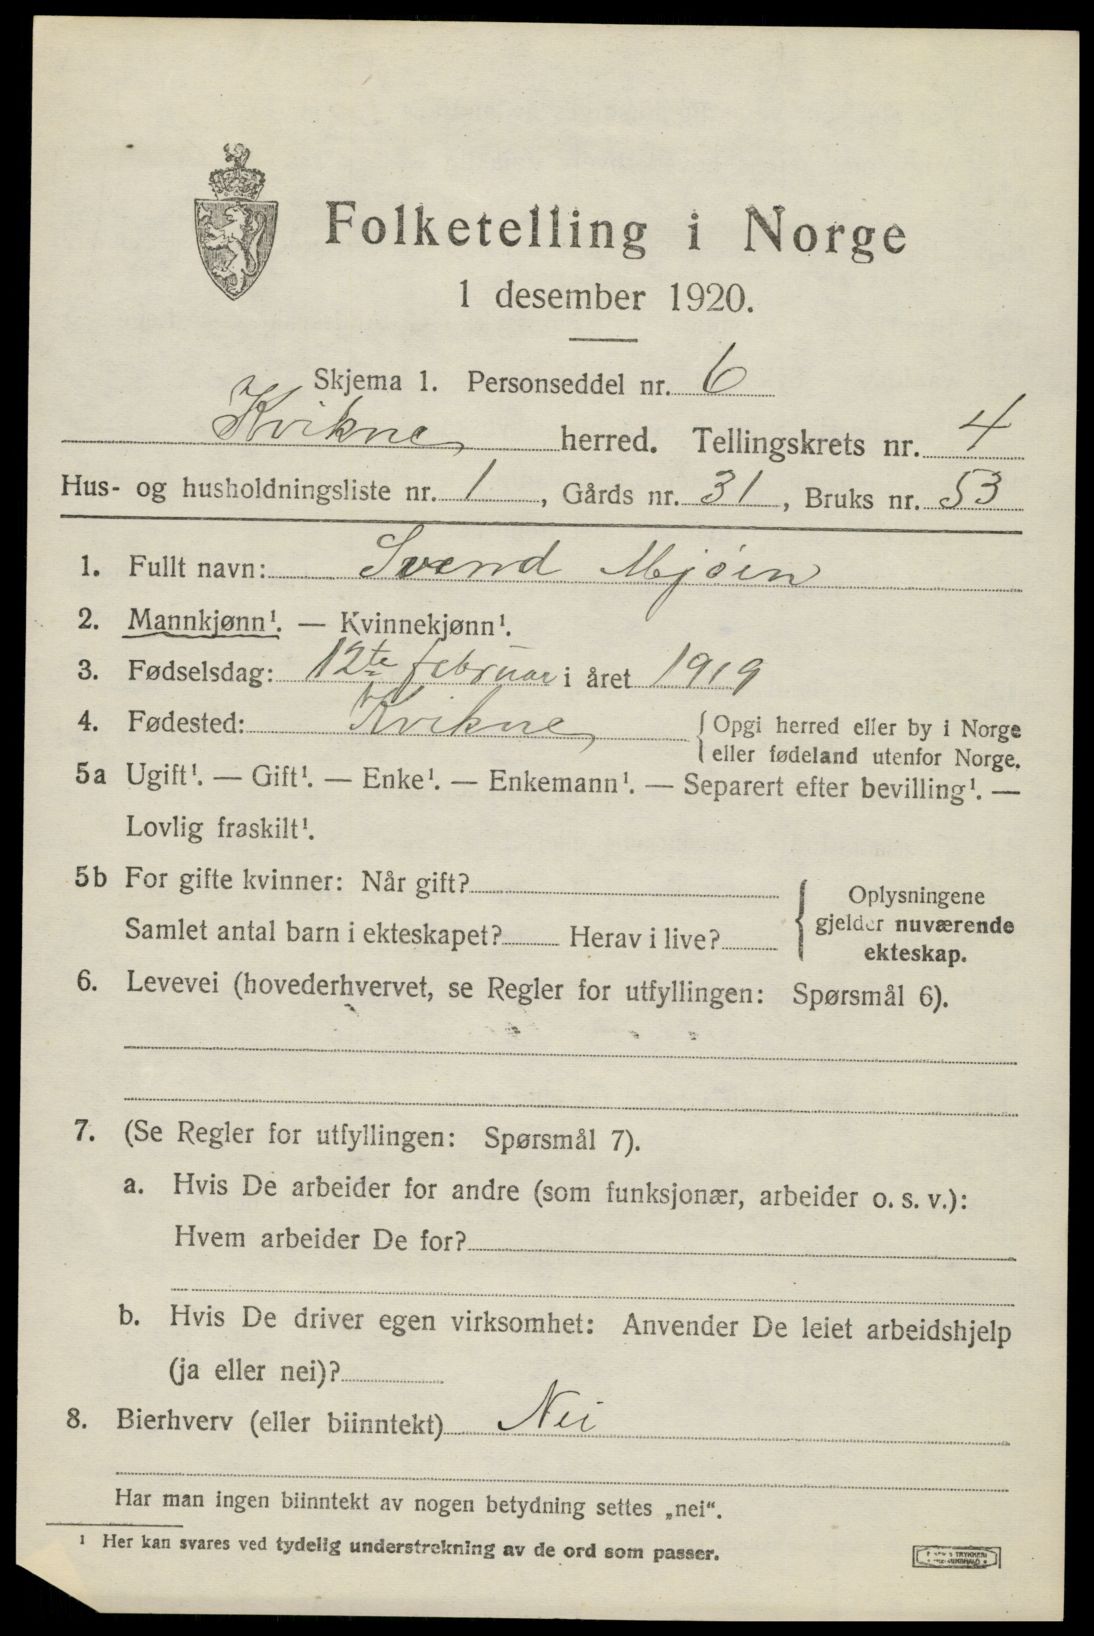 Folketelling i Norge
1 desember 1920.
Skjema 1. Personseddel nr. 6
Kvikne herred. Tellingskrets nr. 4
Hus- og husholdningsliste nr. 1, Gårds nr. 31, Bruks nr. 53
1. Fullt navn: Svend Mjøen
2. Mannkjønn¹. — Kvinnekjønn¹.
3. Fødselsdag: 12te februar i året 1919
4. Fødested: Kvikne { Opgi herred eller by i Norge
eller fødeland utenfor Norge.
5a Ugift¹. — Gift¹. — Enke¹. — Enkemann¹. — Separert efter bevilling¹. —
Lovlig fraskilt¹.
5b For gifte kvinner: Når gift?
Samlet antal barn i ekteskapet? Herav i live?
{ Oplysningene
gjelder nuværende
ekteskap.
6. Levevei (hovederhvervet, se Regler for utfyllingen: Spørsmål 6).
7. (Se Regler for utfyllingen: Spørsmål 7).
a. Hvis De arbeider for andre (som funksjonær, arbeider o. s. v.):
Hvem arbeider De for?
b. Hvis De driver egen virksomhet: Anvender De leiet arbeidshjelp
(ja eller nei)?
8. Bierhverv (eller biinntekt) Nei
Har man ingen biinntekt av nogen betydning settes „nei“.
¹ Her kan svares ved tydelig understrekning av de ord som passer.